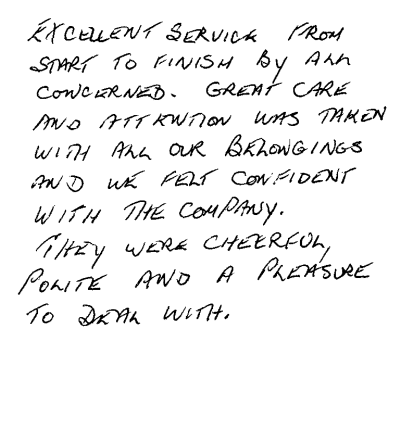 EXCELLENT SERVICE FROM
START TO FINISH BY ALL
CONCERNED. GREAT CARE
AND ATTENTION WAS TAKEN
WITH ALL OUR BELONGINGS
AND WE FELT CONFIDENT
WITH THE COMPANY.
THEY WERE CHEERFUL,
POLITE AND A PLEASURE
TO DEAL WITH.